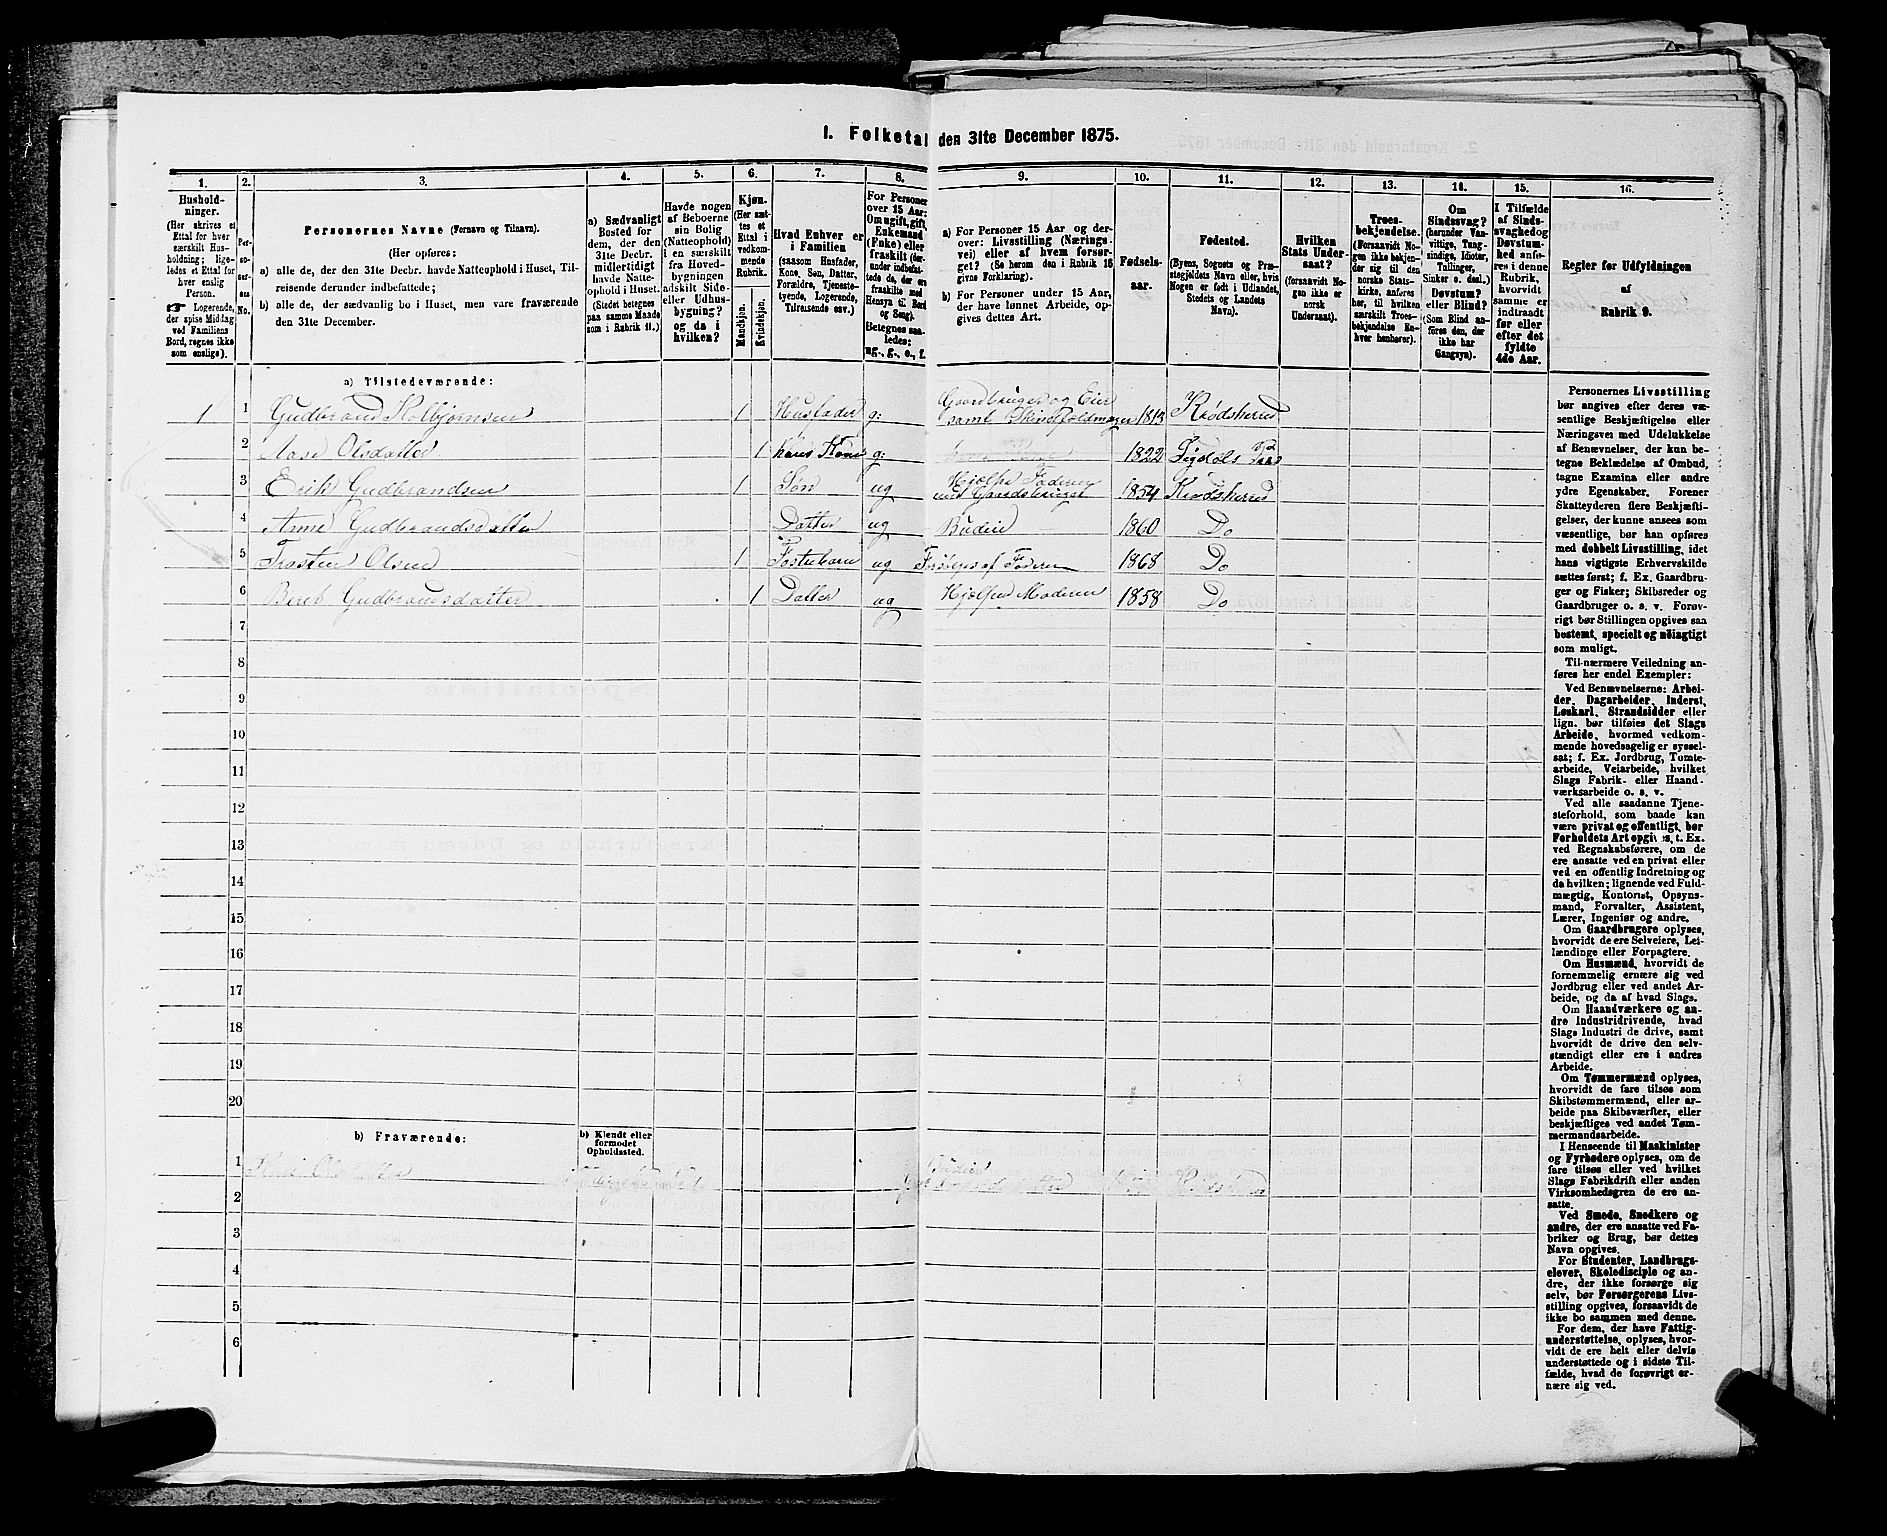 1. Folketal den 31te December 1875.
1.
Hushold-
ninger.
(Her skrives et
Ettal for hver
særskilt Hus-
holdning; lige-
ledes et Ettal for
hver enslig
Person.
☞ Logerende,
der spise Middag
ved Familiens
Bord, regnes ikke
som enslige).
2.
Per-
so-
ner-
nes
No.
3.
Personernes Navne (Fornavn og Tilnavn).
(Her opføres:
a) alle de, der den 31te Decbr. havde Natteophold i Huset, Til-
reisende derunder indbefattede;
b) alle de, der sædvanlig bo i Huset, men vare fraværende
den 31te December.
4.
a) Sædvanligt
Bosted for
dem, der den
31te Decbr.
midlertidigt
havde Natte-
ophold i Huset.
(Stedet betegnes
paa samme Maade
som i Rubrik 11.)
5.
Havde nogen
af Beboerne
sin Bolig
(Natteophold)
i en særskilt
fra Hoved-
bygningen
adskilt Side-
eller Udhus-
bygning?
og da i
hvilken?
6.
Kjøn.
(Her sæt-
tes et
Ettal i
vedkom-
mende
Rubrik.
Mandkjøn.
Kvindekjøn.
7.
Hvad Enhver er
i Familien
(saasom Husfader,
Kone, Søn, Datter,
Forældre, Tjeneste-
tyende, Logerende,
Tilreisende osv.)
8.
For Personer
over 15 Aar:
Om ugift, gift,
Enkemand
(Enke) eller
fraskilt (der-
under indbefat-
tede de, der ere
fraskilte med
Hensyn til Bord
og Seng).
Betegnes saa-
ledes:
ug., g., e., f.
9.
a) For Personer 15 Aar og der-
over: Livsstilling (Nærings-
vei) eller af hvem forsør-
get? (Se herom den i Rubrik 16
givne Forklaring).
b) For Personer under 15 Aar,
der have lønnet Arbeide, op-
gives dettes Art.
10.
Fødsels-
aar.
11.
Fødested.
(Byens, Sognets og Præ-
stegjeldets Navn eller, hvis
Nogen er født i Udlandet,
Stedets og Landets
Navn).
12.
Hvilken
Stats Under-
saat?
(forsaavidt No-
gen ikke er
norsk
Undersaat).
13.
Troes-
bekjendelse.
(Forsaavidt No-
gen ikke bekjen-
der sig til den
norske Stats-
kirke, anføres
her, til hvilken
særskilt Troes-
bekjendelse En-
hver henhører).
14.
Om
Sindssvag?
(herunder Van-
vittige, Tung-
sindige, Idioter,
Tullinger,
Sinker o. desl.)
Døvstum?
eller Blind?
(Som Blind an-
føres den, der
ikke har
Gangsyn).
15.
I Tilfælde
af Sinds-
svaghed og
Døvstum-
hed anfø-
res i denne
Rubrik,
hvorvidt
samme er
indtraadt
før eller
efter det
fyldte
4de Aar.
16.
Regler for Udfyldningen
af
Rubrik 9.
a) Tilstedeværende:
1 1 Gudbrand Kolbjørnsen 1 Husfader g: Gaardbruger og Eier
samt 1813 Krødsherred
2 Aase Olsdatter 1 hans Kone g: 1822 Sigdals
3 Erik Gudbrandsen 1 Søn ug Hjælper Faderen
med Gaardsbruget 1854 Krødsherred
4 Anne Gudbrandsdatter Datter ug Budeie 1860 Do
5 Trosten Olsen 1 Fostebarn ug Forsørges af Faderen 1868 Do
6 Beret Gudbrandsdatter 1 Datter ug Hjælper Moderen 1858 Do
7
8
9
10
11
12
13
14
15
16
17
18
19
20
b) Fraværende:
b) Kjendt eller
formodet
Opholdssted.
1 Olsdatter Budeie
2
3
4
5
6
Personernes Livsstilling
bør angives efter deres væ-
sentlige Beskjæftigelse eller
Næringsvei med Udelukkelse
af Benævnelser, der kun be-
tegne Beklædelse af Ombud,
tagne Examina eller andre
ydre Egenskaber. Forener
Skatteyderen flere Beskjæfti-
gelser, der kunne ansees som
væsentlige, bør han opføres
med dobbelt Livsstilling, idet
hans vigtigste Erhvervskilde
sættes først; f. Ex. Gaardbru-
ger og Fisker; Skibsreder og
Gaardbruger o. s. v. Forøv-
rigt bør Stillingen opgives saa
bestemt, specielt og nöiagtigt
som muligt.
Til nærmere Veiledning an-
føres her endel Exempler:
Ved Benævnelserne: Arbei-
der, Dagarbeider, Inderst,
Løskarl, Strandsidder eller
lign. bør tilføies det Slags
Arbeide, hvormed vedkom-
mende hovedsagelig er syssel-
sat; f. Ex. Jordbrug, Tomte-
arbeide, Veiarbeide, hvilket
Slags Fabrik- eller Haand-
værksarbeide o. s. v.
Ved alle saadanne Tjene-
steforhold, som baade kan
være privat og offentligt, bør
Forholdets Art opgives, t. Ex.
ved Regnskabsførere, om de
ere ansatte ved en privat eller
ved en offentlig Indretning og
da hvilken; lignende ved Fuld-
mægtig, Kontorist, Opsyns-
mand, Forvalter, Assistent,
Lærer, Ingeniør og andre.
Om Gaardbrugere oplyses,
hvorvidt de ere Selveiere, Lei-
lændinge eller Forpagtere.
Om Husmænd, hvorvidt de
fornemmelig ernære sig ved
Jordbrug eller ved andet Ar-
beide, og da af hvad Slags.
Om Haandværkere og an-
dre Industridrivende, hvad
Slags Industri de drive, samt
hvorvidt de drive den selv-
stændigt eller ere i andres
Arbeide.
Om Tømmermænd oplyses,
hvorvidt de fare tilsøs som
Skibstømmermænd, eller ar-
beide paa Skibsværfter, eller
beskjæftiges ved andet Tøm-
mermandsarbeide.
I Henseende til Maskinister
og Fyrbødere oplyses, om de
fare tilsøs eller ved hvilket
Slags Fabrikdrift eller anden
Virksomhedsgren de ere an-
satte.
Ved Smede, Snedkere og
andre, der ere ansatte ved Fa-
briker og Brug, bør dettes
Navn opgives.
For Studenter, Landbrugs-
elever, Skoledisciple og an-
dre, der ikke forsørge sig
selv, bør Forsørgerens Livs-
stilling opgives, forsaavidt de
ikke bo sammen med denne.
For dem, der have Fattig-
understøttelse, oplyses, hvor-
vidt de ere helt eller delvis
understøttede og i sidste Til-
fælde, hvad de forøvrigt er-
nære sig ved.